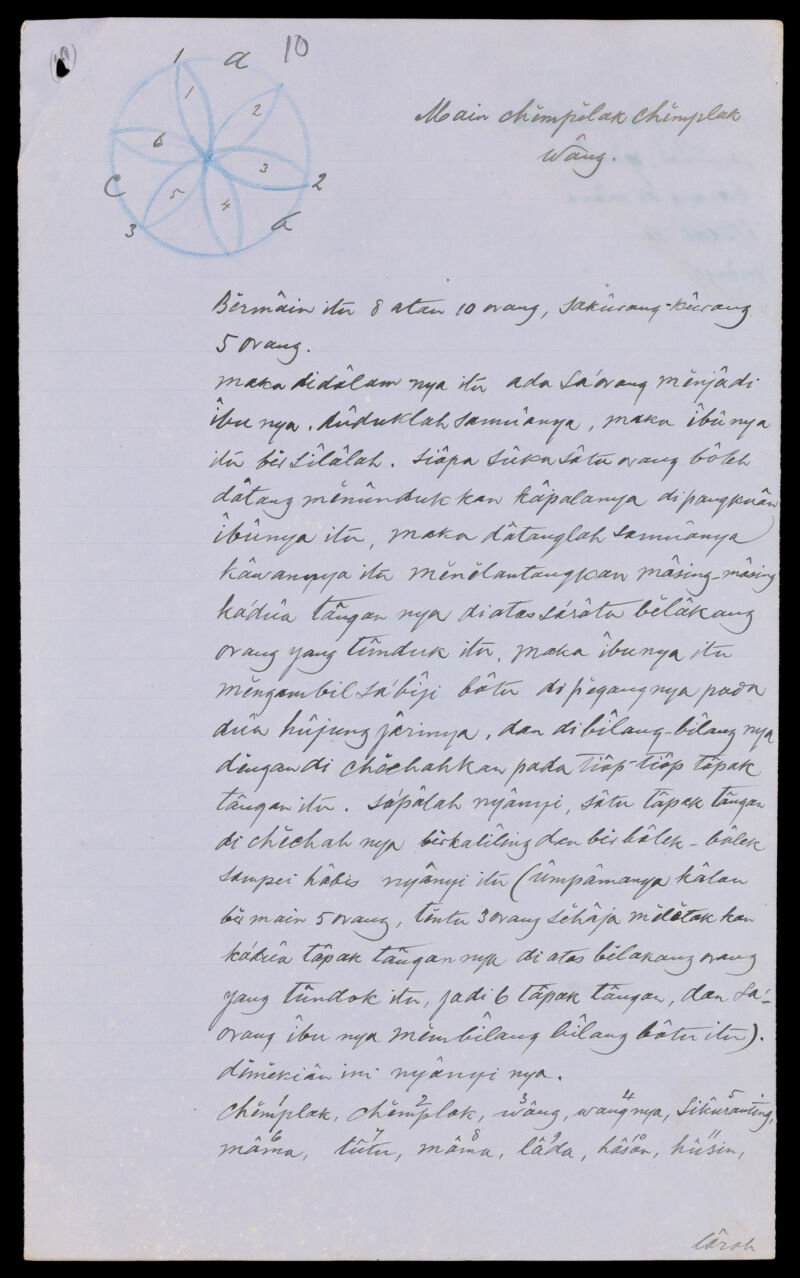 10
1 a
1 2 3 4 5 6
C 2
3 b
Main chĕmpĕlak chĕmplak
wâng.
Bĕrmâin itu 8 atau 10 orang, sakûrang-kûrang
5 orang.
maka didâlam nya itu ada sa'orang mĕnjâdi
îbu nya. dûduklah samûanya, maka îbûnya
itu bĕrsîlâlah. siâpa sûka sâtu orang bôleh
dâtang mĕnûndukkan kâpalanya dipangkuân
îbûnya itu, maka dâtanglah samûanya
kâwannya itu mĕnĕlantangkan mâsing-mâsing
ka'dûa tângan nya diatas sa'râtu bĕlâkang
orang yang tûnduk itu, maka îbunya itu
mĕngambil sa'bîji bâtu dipĕgangnya pada
dûa hûjung jârinya, dan dibîlang-bîlang nya
dĕngan di chĕchahkan pada tiâp-tiâp tâpak
tângan itu. sa'pâlah nyânyi, sâtu tâpak tângan
di chĕchah nya bĕrkalîling dan bĕrbâlek-bâlek
sampei hâbis nyânyi itu (ûmpâmanya kâlau
bĕrmain 5 orang, tĕntu 3 orang sĕhâja mĕlĕtak kan
ka'dûa tâpak tângan nya di atas bĕlakang orang
yang tûndok itu, jadi 6 tâpak tângan, dan sa'-
orang îbu nya mĕmbîlang bîlang bâtu itu).
dĕmĕkiân ini nyânyi nya.
chĕm1plak, chĕm2plak, w3âng, wang4nya, Sikûran5ting,
mâ6ma, tû7tu, mâ8ma, lâ9da, hâs10an, hû11sin,
lârah